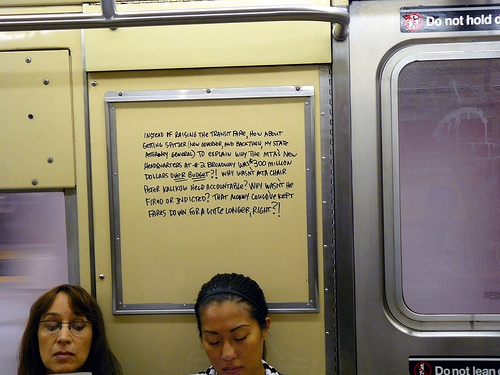 INSTEAD OF RAISING THE TRANSIT FARE, HOW ABOUT
GETTING SPITZER (NOW GOVERNOR, AND BACK THEN, NY STATE
ATTORNEY GENERAL) TO EXPLAIN WHY THE MTA'S NEW
HEADQUARTERS AT #2 BROADWAY WAS $300 MILLION
DOLLARS OVER BUDGET?! WHY WASN'T MTA CHAIR
PETER KALIKOW HELD ACCOUNTABLE? WHY WASN'T HE
FIRED OR INDICTED? THAT MONEY COULD'VE KEPT
FARES DOWN FOR A LITTLE LONGER, RIGHT?!
Do not hold
Do not lean